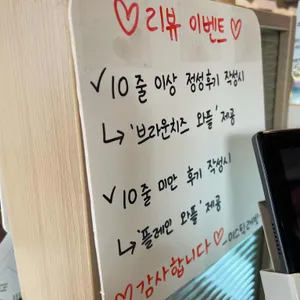 ♡리뷰 이벤트♡
✓10줄 이상 정성후기 작성시
↳'브라운치즈 와플' 제공
✓10줄 미만 후기 작성시
↳'플레인 와플' 제공
♡감사합니다♡